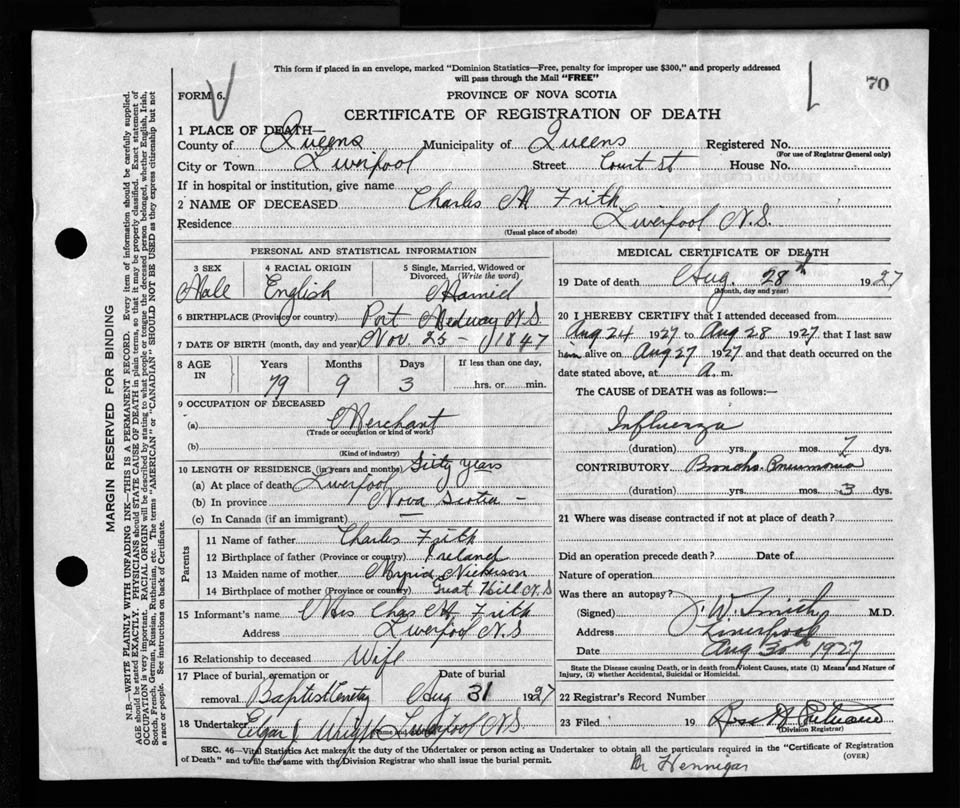 This form if placed in an envelope, marked "Dominion Statistics—Free, penalty for improper use $300," and properly addressed
will pass through the Mail "FREE"
70
FORM 6.
PROVINCE OF NOVA SCOTIA
CERTIFICATE OF REGISTRATION OF DEATH
1 PLACE OF DEATH—
County of Queens Municipality of Queens Registered No.
(For use of Registrar General only)
City or Town Liverpool Street Court St House No.
If in hospital or institution, give name
2 NAME OF DECEASED Charles M Frith
Residence Liverpool N.S.
(Usual place of abode)
PERSONAL AND STATISTICAL INFORMATION
3 SEX 4 RACIAL ORIGIN 5 Single, Married, Widowed or Divorced. (Write the word)
Male English Married
6 BIRTHPLACE (Province or country) Port Medway N.S.
7 DATE OF BIRTH (month, day and year) Nov. 25 - 1847
8 AGE IN Years Months Days If less than one day,
79 9 3 hrs. or min.
9 OCCUPATION OF DECEASED
(a) Merchant
(Trade or occupation or kind of work)
(b)
(Kind of industry)
10 LENGTH OF RESIDENCE (in years and months) Sixty years
(a) At place of death Liverpool
(b) In province Nova Scotia -
(c) In Canada (if an immigrant) —
Parents
11 Name of father Charles Frith
12 Birthplace of father (Province or country) Ireland
13 Maiden name of mother Nickerson
14 Birthplace of mother (Province or country) Great Hill N.S
15 Informant's name Mrs Chas M Frith
Address Liverpool N.S
16 Relationship to deceased Wife
17 Place of burial, cremation or removal. Date of burial
Baptist Cemetery Aug 31 1927
18 Undertaker Edgar Wright Liverpool N.S.
MEDICAL CERTIFICATE OF DEATH
19 Date of death Aug. 28th 1927
(Month, day and year)
20 I HEREBY CERTIFY that I attended deceased from
Aug 24 1927 to Aug 28 1927 that I last saw
him alive on Aug 27 1927 and that death occurred on the
date stated above, at a. m.
The CAUSE OF DEATH was as follows:—
Influenza
(duration) yrs. mos. 7 dys.
CONTRIBUTORY Broncho. Pneumonia
(duration) yrs. mos. 3 dys.
21 Where was disease contracted if not at place of death?
Did an operation precede death? Date of
Nature of operation
Was there an autopsy?
(Signed) J. W. Smith M.D.
Address Liverpool
Date Aug 30th 1927
State the Disease causing Death, or in death from Violent Causes, state (1) Means and Nature of
Injury, (2) whether Accidental, Suicidal or Homicidal.
22 Registrar's Record Number
23 Filed 19
(Division Registrar)
SEC. 46—Vital Statistics Act makes it the duty of the Undertaker or person acting as Undertaker to obtain all the particulars required in the "Certificate of Registration
of Death" and to file the same with the Division Registrar who shall issue the burial permit.
(OVER)
Dr Hennigar
MARGIN RESERVED FOR BINDING
N.B.—WRITE PLAINLY WITH UNFADING INK—THIS IS A PERMANENT RECORD. Every item of information should be carefully supplied.
AGE should be stated EXACTLY. PHYSICIANS should STATE CAUSE OF DEATH in plain terms, so that it may be properly classified. Exact statement of
OCCUPATION is very important. RACIAL ORIGIN will be described by stating to what people or tongue the deceased person belonged, whether English, Irish,
Scotch, French, German, Russian, Ruthenian, etc. The terms "AMERICAN" or "CANADIAN" SHOULD NOT BE USED as they express citizenship but not
a race or people. See instructions on back of Certificate.